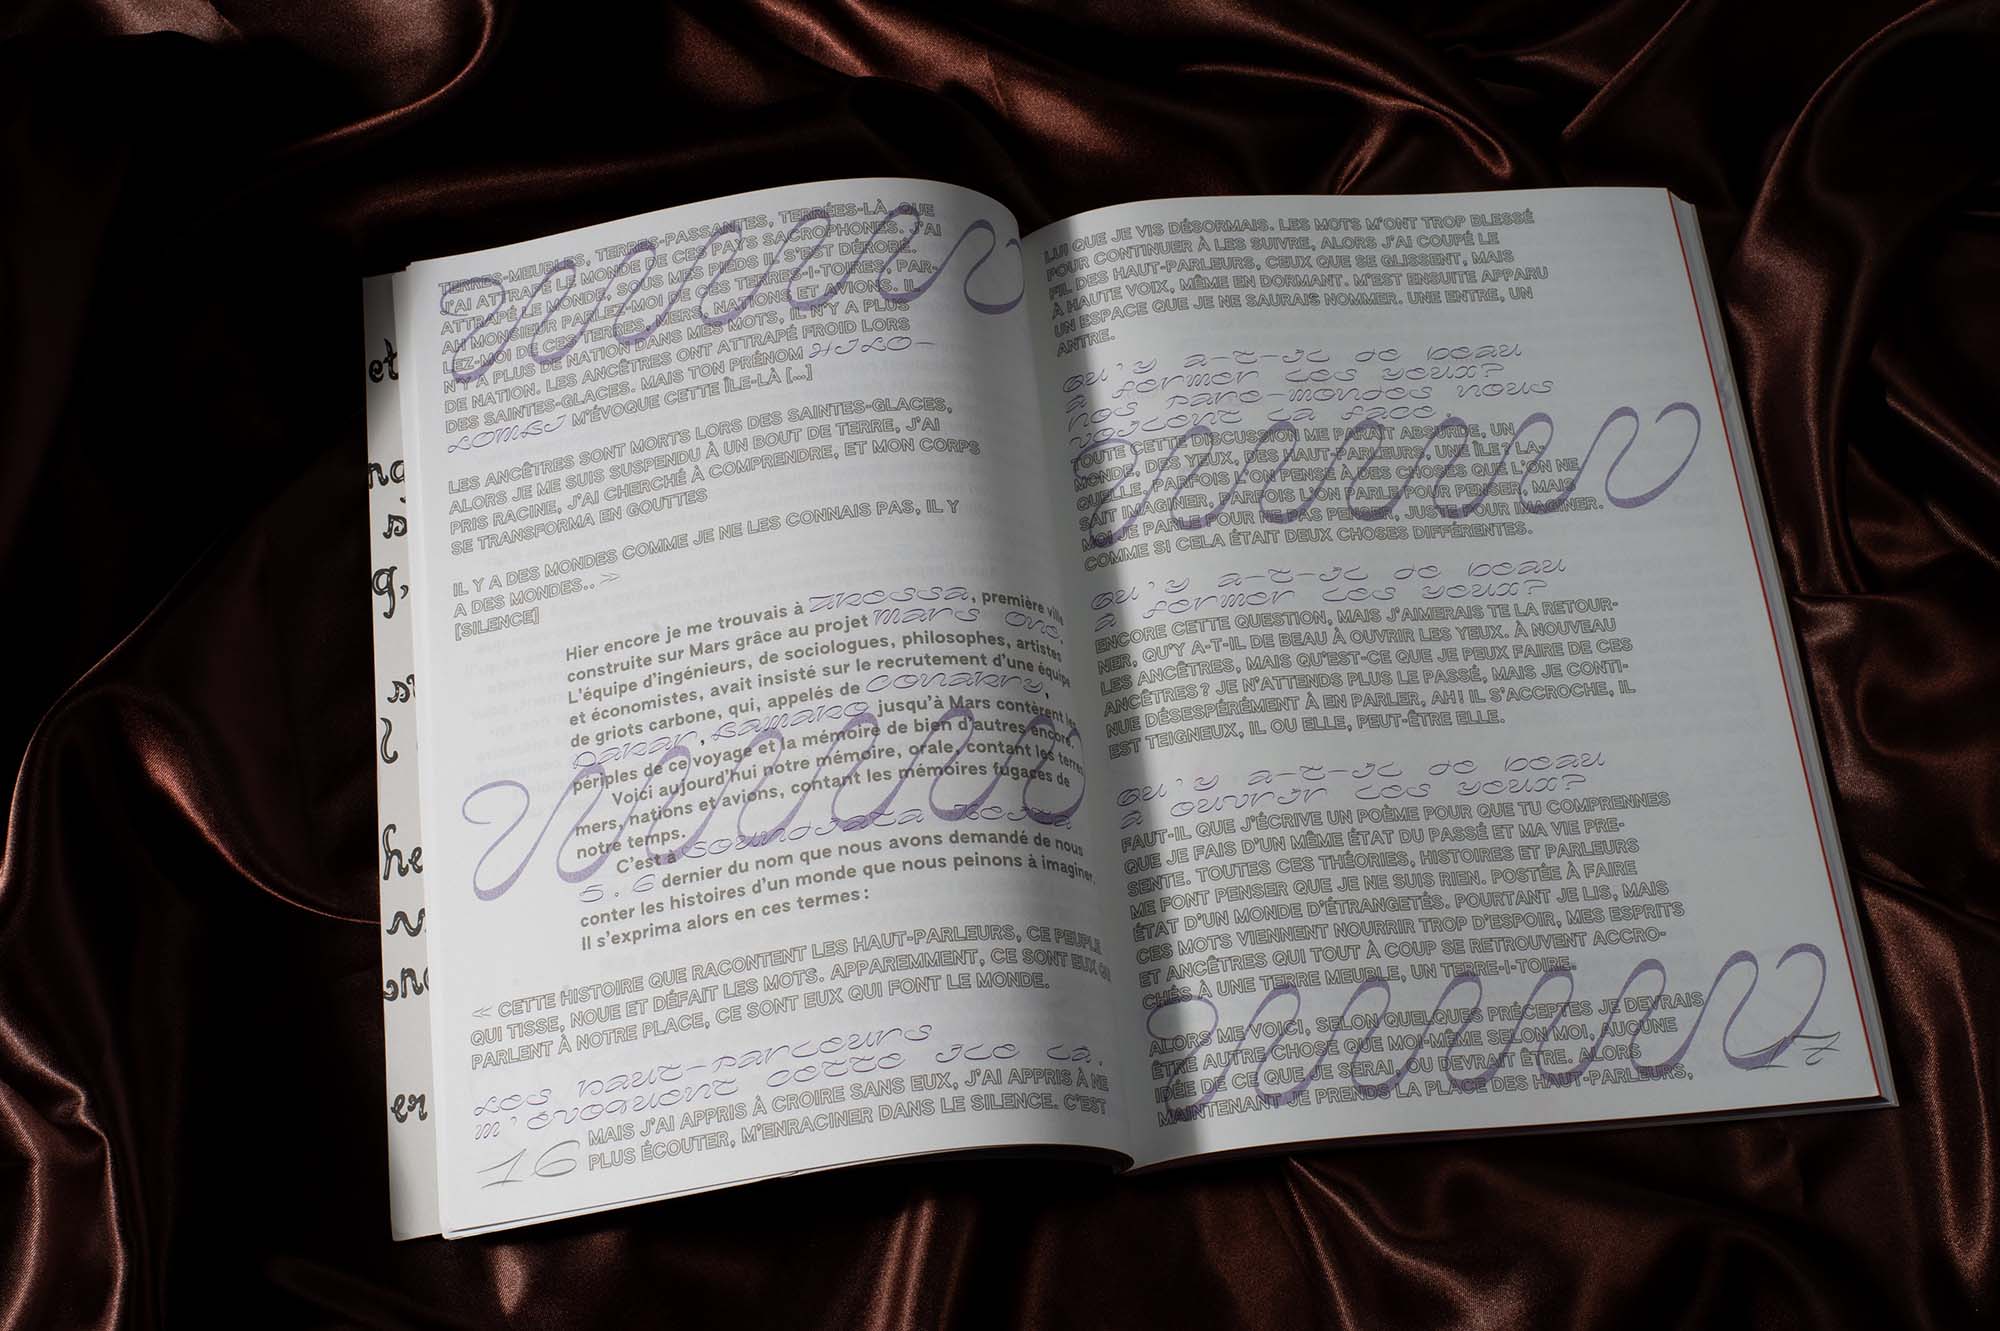 TERRES-MEUBLES, TERRES-PASSANTES, TERRÉES-LÀ, QUE
J'AI ATTRAPÉ LE MONDE DE CES PAYS SACROPHONES. J'AI
ATTRAPÉ LE MONDE, SOUS MES PIEDS IL S'EST DÉROBÉ.
AH MONSIEUR PARLEZ-MOI DE CES TERRES-I-TOIRES, PAR-
LEZ-MOI DE CES TERRES, MERS, NATIONS ET AVIONS. IL
N'Y A PLUS DE NATION DANS MES MOTS, IL N'Y A PLUS
DE NATION. LES ANCÊTRES ONT ATTRAPÉ FROID LORS
DES SAINTES-GLACES. MAIS TON PRÉNOM HILO-
LOMBI M'ÉVOQUE CETTE ÎLE-LÀ [...]
LES ANCÊTRES SONT MORTS LORS DES SAINTES-GLACES,
ALORS JE ME SUIS SUSPENDU À UN BOUT DE TERRE, J'AI
PRIS RACINE, J'AI CHERCHÉ À COMPRENDRE, ET MON CORPS
SE TRANSFORMA EN GOUTTES
IL Y A DES MONDES COMME JE NE LES CONNAIS PAS, IL Y
A DES MONDES.. »
[SILENCE]
Hier encore je me trouvais à Arossa, première ville
construite sur Mars grâce au projet Mars One.
L'équipe d'ingénieurs, de sociologues, philosophes, artistes
et économistes, avait insisté sur le recrutement d'une équipe
de griots carbone, qui, appelés de Conakry,
Dakar, Bamako jusqu'à Mars contèrent les
périples de ce voyage et la mémoire de bien d'autres encore.
Voici aujourd'hui notre mémoire, orale, contant les terres
mers, nations et avions, contant les mémoires fugaces de
notre temps.
C'est à Soundiata Keita
5.6 dernier du nom que nous avons demandé de nous
conter les histoires d'un monde que nous peinons à imaginer.
Il s'exprima alors en ces termes :
« CETTE HISTOIRE QUE RACONTENT LES HAUT-PARLEURS, CE PEUPLE
QUI TISSE, NOUE ET DÉFAIT LES MOTS. APPAREMMENT, CE SONT EUX QUI
PARLENT À NOTRE PLACE, CE SONT EUX QUI FONT LE MONDE.
Les haut-parleurs
m'évoquent cette île là.
MAIS J'AI APPRIS À CROIRE SANS EUX, J'AI APPRIS À NE
PLUS ÉCOUTER, M'ENRACINER DANS LE SILENCE. C'EST
16
LUI QUE JE VIS DÉSORMAIS. LES MOTS M'ONT TROP BLESSÉ
POUR CONTINUER À LES SUIVRE, ALORS J'AI COUPÉ LE
FIL DES HAUT-PARLEURS, CEUX QUE SE GLISSENT, MAIS
À HAUTE VOIX, MÊME EN DORMANT. M'EST ENSUITE APPARU
UN ESPACE QUE JE NE SAURAIS NOMMER. UNE ENTRE, UN
ANTRE.
Qu'y a-t-il de beau
à fermer les yeux?
nos pare-mondes nous
voilent la face.
TOUTE CETTE DISCUSSION ME PARAÎT ABSURDE, UN
MONDE, DES YEUX, DES HAUT-PARLEURS, UNE ÎLE? LA-
QUELLE. PARFOIS L'ON PENSE À DES CHOSES QUE L'ON NE
SAIT IMAGINER, PARFOIS L'ON PARLE POUR PENSER, MAIS
MOI JE PARLE POUR NE PAS PENSER, JUSTE POUR IMAGINER.
COMME SI CELA ÉTAIT DEUX CHOSES DIFFÉRENTES.
Qu'y a-t-il de beau
à fermer les yeux?
ENCORE CETTE QUESTION, MAIS J'AIMERAIS TE LA RETOUR-
NER, QU'Y A-T-IL DE BEAU À OUVRIR LES YEUX. À NOUVEAU
LES ANCÊTRES, MAIS QU'EST-CE QUE JE PEUX FAIRE DE CES
ANCÊTRES? JE N'ATTENDS PLUS LE PASSÉ, MAIS JE CONTI-
NUE DÉSESPÉRÉMENT À EN PARLER, AH! IL S'ACCROCHE, IL
EST TEIGNEUX, IL OU ELLE, PEUT-ÊTRE ELLE.
Qu'y a-t-il de beau
à ouvrir les yeux?
FAUT-IL QUE J'ÉCRIVE UN POÈME POUR QUE TU COMPRENNES
QUE JE FAIS D'UN MÊME ÉTAT DU PASSÉ ET MA VIE PRE-
SENTE. TOUTES CES THÉORIES, HISTOIRES ET PARLEURS
ME FONT PENSER QUE JE NE SUIS RIEN. POSTÉE À FAIRE
ÉTAT D'UN MONDE D'ÉTRANGETÉS. POURTANT JE LIS, MAIS
CES MOTS VIENNENT NOURRIR TROP D'ESPOIR, MES ESPRITS
ET ANCÊTRES QUI TOUT À COUP SE RETROUVENT ACCRO-
CHÉS À UNE TERRE MEUBLE, UN TERRE-I-TOIRE.
ALORS ME VOICI, SELON QUELQUES PRÉCEPTES JE DEVRAIS
ÊTRE AUTRE CHOSE QUE MOI-MÊME SELON MOI, AUCUNE
IDÉE DE CE QUE JE SERAI, OU DEVRAIT ÊTRE. ALORS
MAINTENANT JE PRENDS LA PLACE DES HAUT-PARLEURS,
17